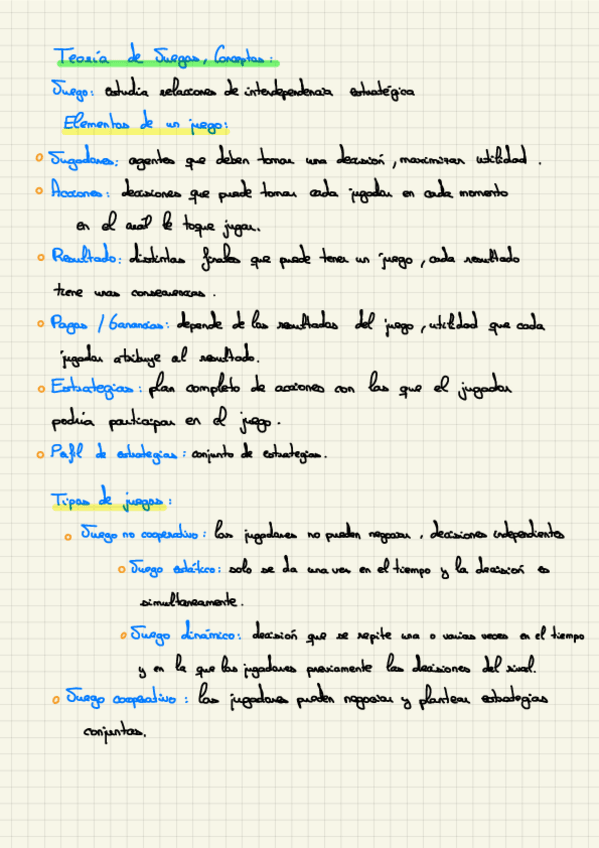 Teoría de Juegos, Conceptos:
Juego: estudia relaciones de interdependencia estratégica
Elementos de un juego:
Jugadores: agentes que deben tomar una decisión, maximizar utilidad.
Acciones: decisiones que puede tomar cada jugador en cada momento
en el cuál le toque jugar.
Resultado: distintos finales que puede tener un juego, cada resultado
tiene unas consecuencias.
Pagos / Ganancias: depende de los resultados del juego, utilidad que cada
jugador atribuye al resultado.
Estrategias: plan completo de acciones con las que el jugador
podría participar en el juego.
Perfil de estrategias: conjunto de estrategias.
Tipos de juegos:
Juego no cooperativo: los jugadores no pueden negociar, decisiones independientes
Juego estático: solo se da una vez en el tiempo y la decisión es
simultaneamente.
Juego dinámico: decisión que se repite una o varias veces en el tiempo
y en la que los jugadores previamente las decisiones del rival.
Juego cooperativo: los jugadores pueden negociar y plantear estrategias
conjuntas.